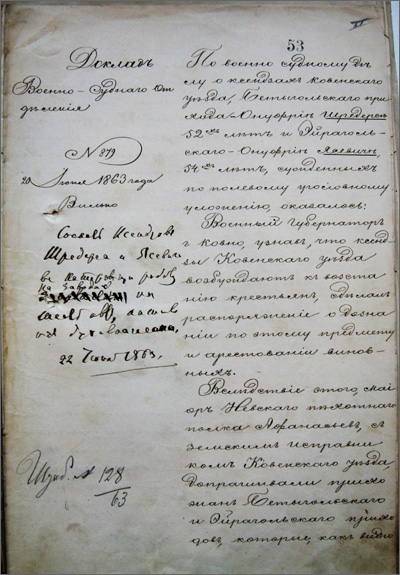 53
Докладъ
Военно-Суднаго От
дѣленія
№ 279
20 Іюня 1863 года
Вильно
22 Іюня 1863.
Шрйб. № 128
63
По военно судному дѣ
лу о ксендзахъ Ковенскаго
уѣзда, Бетыгольскаго при
хода-Онуфріѣ Шредерсѣ
52хъ лѣтъ и Эйраголь-
скаго-Онуфріѣ Ясевичѣ,
54хъ лѣтъ, сужденныхъ
по полевому уголовному
уложенію, оказалось:
Военный Губернаторъ
г. Ковно, узнавъ, что ксенд-
зы Ковенскаго уѣзда
возбуждаютъ къ возста
нію крестьянъ, сдѣлалъ
распоряженіе о дозна
ніи по этому предмету
и арестованіи винов-
ныхъ.
Вслѣдствіе этого, маі
оръ Невскаго пѣхотнаго
полка Афанасьевъ, съ
земскимъ исправни
комъ Ковенскаго уѣзда,
допрашивали прихо
жанъ Бетыгольскаго
и Эйрагольскаго прихо
довъ, которые, какъ видно